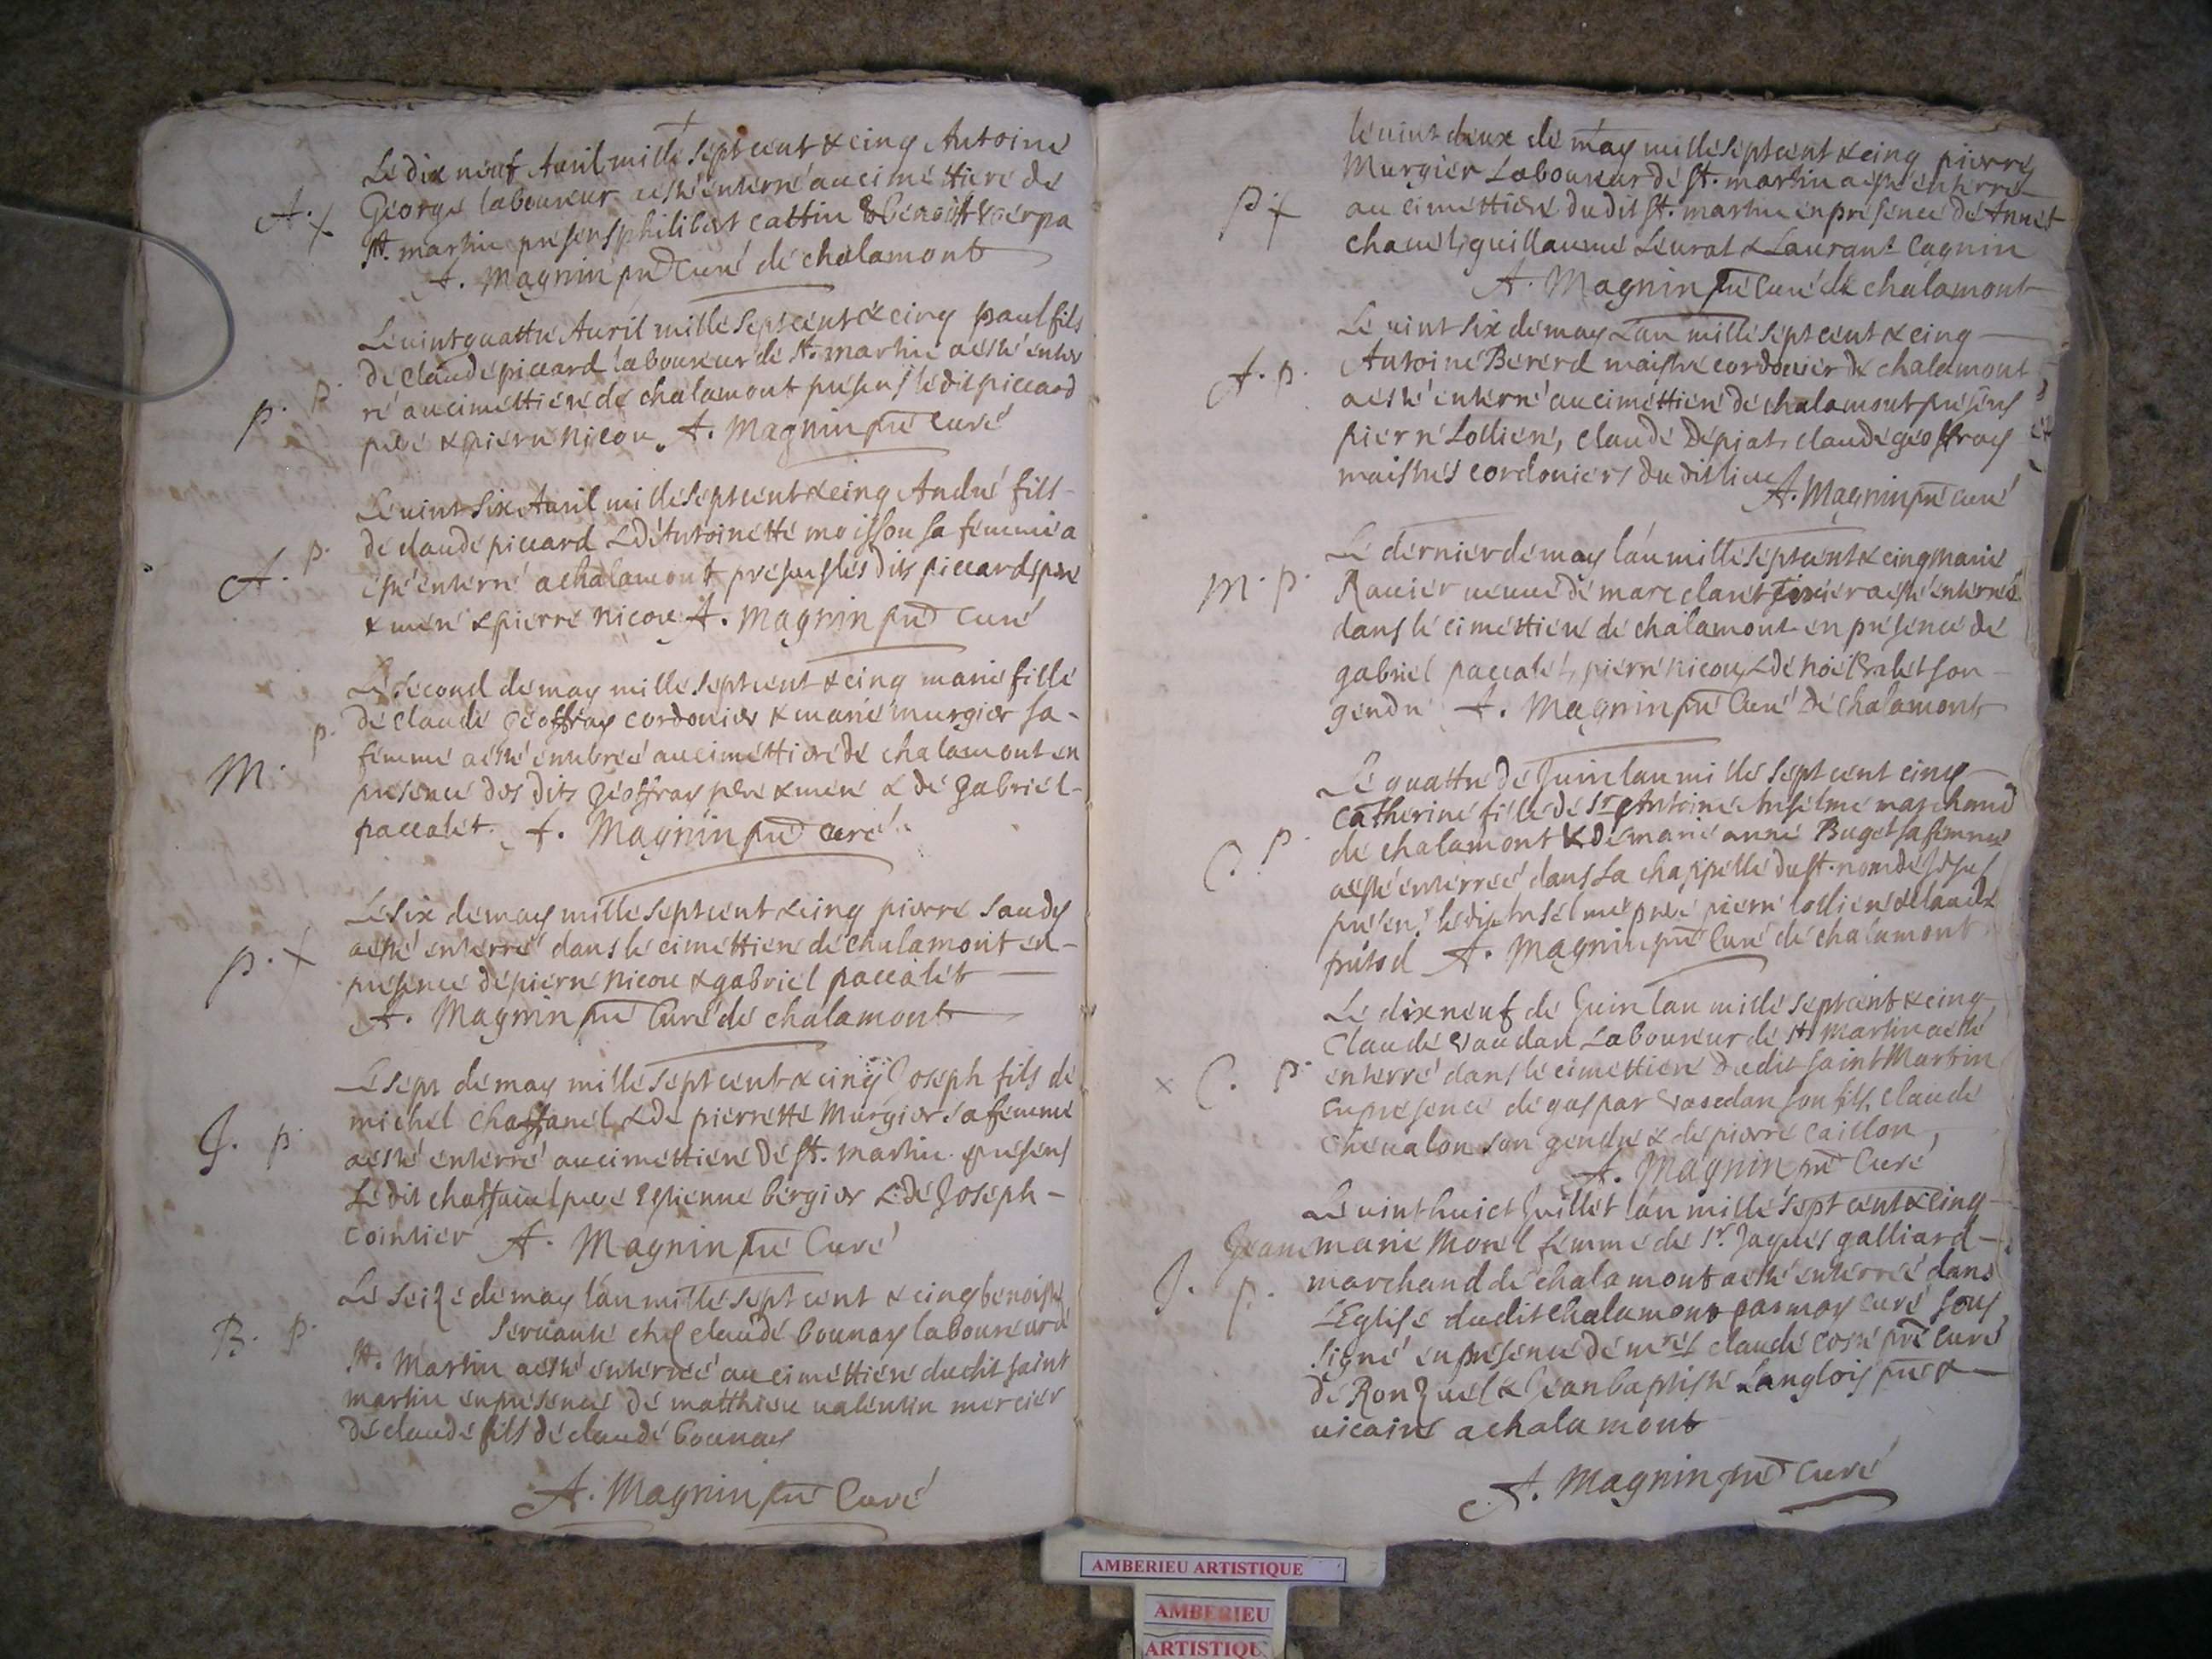 Le dix neuf Auril mille sept cent & cinq Antoine
George laboureur aesté enterré au cimettiere de
A. +
St. martin presens philibert cattin & benoist
A. Magnin pre Curé de chalamont
Le uint quattre Auril mille sept cent & cinq paul fils
de claude piccard laboureur de St. martin aesté enter
p. p.
ré au cimettiere de chalamont presens le dit piccard
pere & pierre nicou. A. Magnin pre Curé
Le uint six Auril mille sept cent & cinq André fils
A. p.
de claude piccard & d'Antoinette moisson sa femme a
esté enterré a chalamont presens les dits piccard pere
& mere & pierre nicou A. Magnin pre Curé
Le second de may mille sept cent & cinq marie fille
de claude Geoffray cordonier & marie murgier sa
M. p.
femme aesté enterreé au cimettiere de chalamont en
presence des dits geoffray pere & mere & de gabriel
paccalet. A. Magnin pre Curé
Le six de may mille sept cent & cinq pierre Saudy
p. +
aesté enterré dans le cimettiere de chalamont en
presence de pierre nicou & gabriel paccalet
A. Magnin pre Curé de chalamont
Le sept de may mille sept cent & cinq Joseph fils de
michel Chaffanel & de pierrette Murgier sa femme
J. p.
aesté enterré au cimettiere de St. martin presens
Le dit chaffanel pere Estienne bergier & de Joseph
cointier A. Magnin pre Curé
Le seize de may l'an mille sept cent & cinq benoiste
B. p.
seruante ches claude bounay laboureur de
St. Martin aesté enterreé au cimettiere dudit saint
martin en presence de matthieu ualentin mercier
de claude fils de claude bounay
A. Magnin pre Curé
le uint deux de may mille sept cent & cinq pierre
Murgier Laboureur de St. martin aesté enterré
p +
au cimettiere du dit St. martin en presence de Annet
chanel, guillaume Leurat & Laurant Cagnin
A. Magnin pre Curé de chalamont
Le uint six de may L'an mille sept cent & cinq
A. p.
Antoine Bererd maistre cordonier de chalamont
aesté enterré au cimettiere de chalamont presens
pierre Lollier, claude Depiat, claude geoffray
maistres cordoniers du dit lieu A. Magnin pre curé
Le dernier de may l'an mille sept cent & cinq marie
M. p.
Rauier ueuue de marc claret aesté enterreé
dans le cimettiere de chalamont en presence de
gabriel paccalet, pierre nicou, & de noël son
gendre A. Magnin pre Curé de chalamont
Le quattre de Juin l'an mille sept cent cinq
catherine fille de Sr Antoine Anselme marchand
C. p.
de chalamont & de marie anne Buget sa femme
aesté enterreé dans la chappelle du St. nom de Jesus
presens le dit Anselme pere pierre lollier & claude
A. Magnin pre Curé de chalamont
Le dix neuf de Juin l'an mille sept cent & cinq
Claude Vaudan Laboureur de St Martin aesté
x C. p.
enterré dans le cimettiere dudit saint Martin
en presence de gaspar Vaudan son fils, claude
cheualon son gendre & de pierre Caillon,
A. Magnin pre Curé
Le uint huict Juillet l'an mille sept cent & cinq
Jeanne marie Morel femme de Sr. Jaques galliard
J. p.
marchand de chalamont aesté enterreé dans
l'Eglise dudit chalamont par moy curé sous
signé en presence de mres claude cosre pre curé
de Ronzuel & Jean baptiste Langlois pre &
uicaire a chalamont
A. Magnin pre Curé
AMBERIEU ARTISTIQUE
AMBERIEU
ARTISTIQU